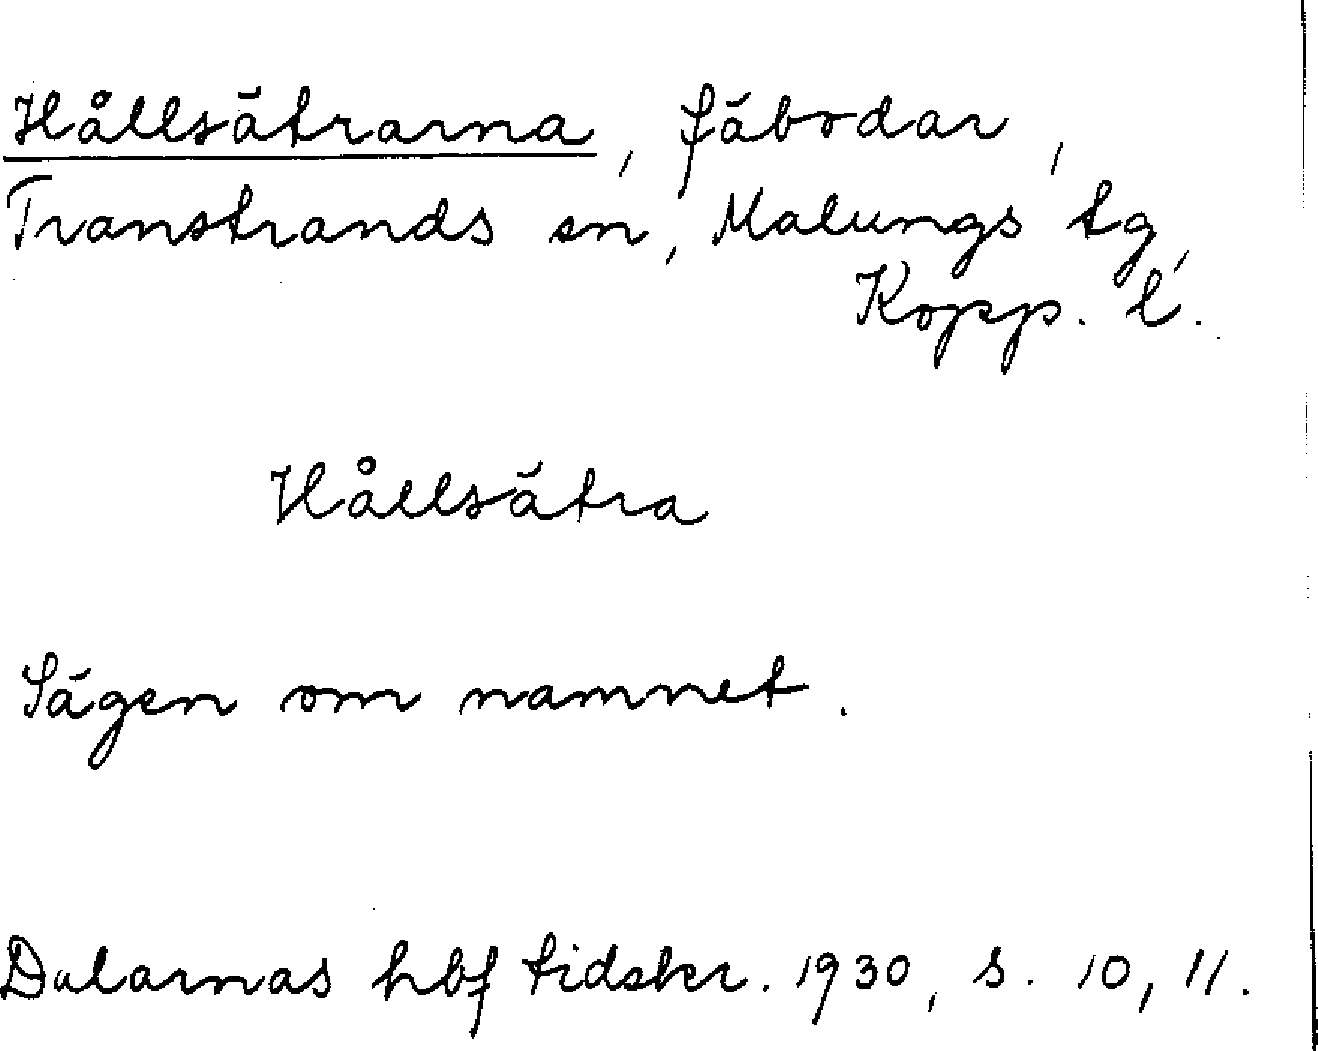 Hållsätrarna, fäbodar,
Transtrands sn, Malungs tg,
Kopp. l.
Hållsätra
Sägen om namnet.
Dalarnas hbf tidskr. 1930, s. 10, 11.